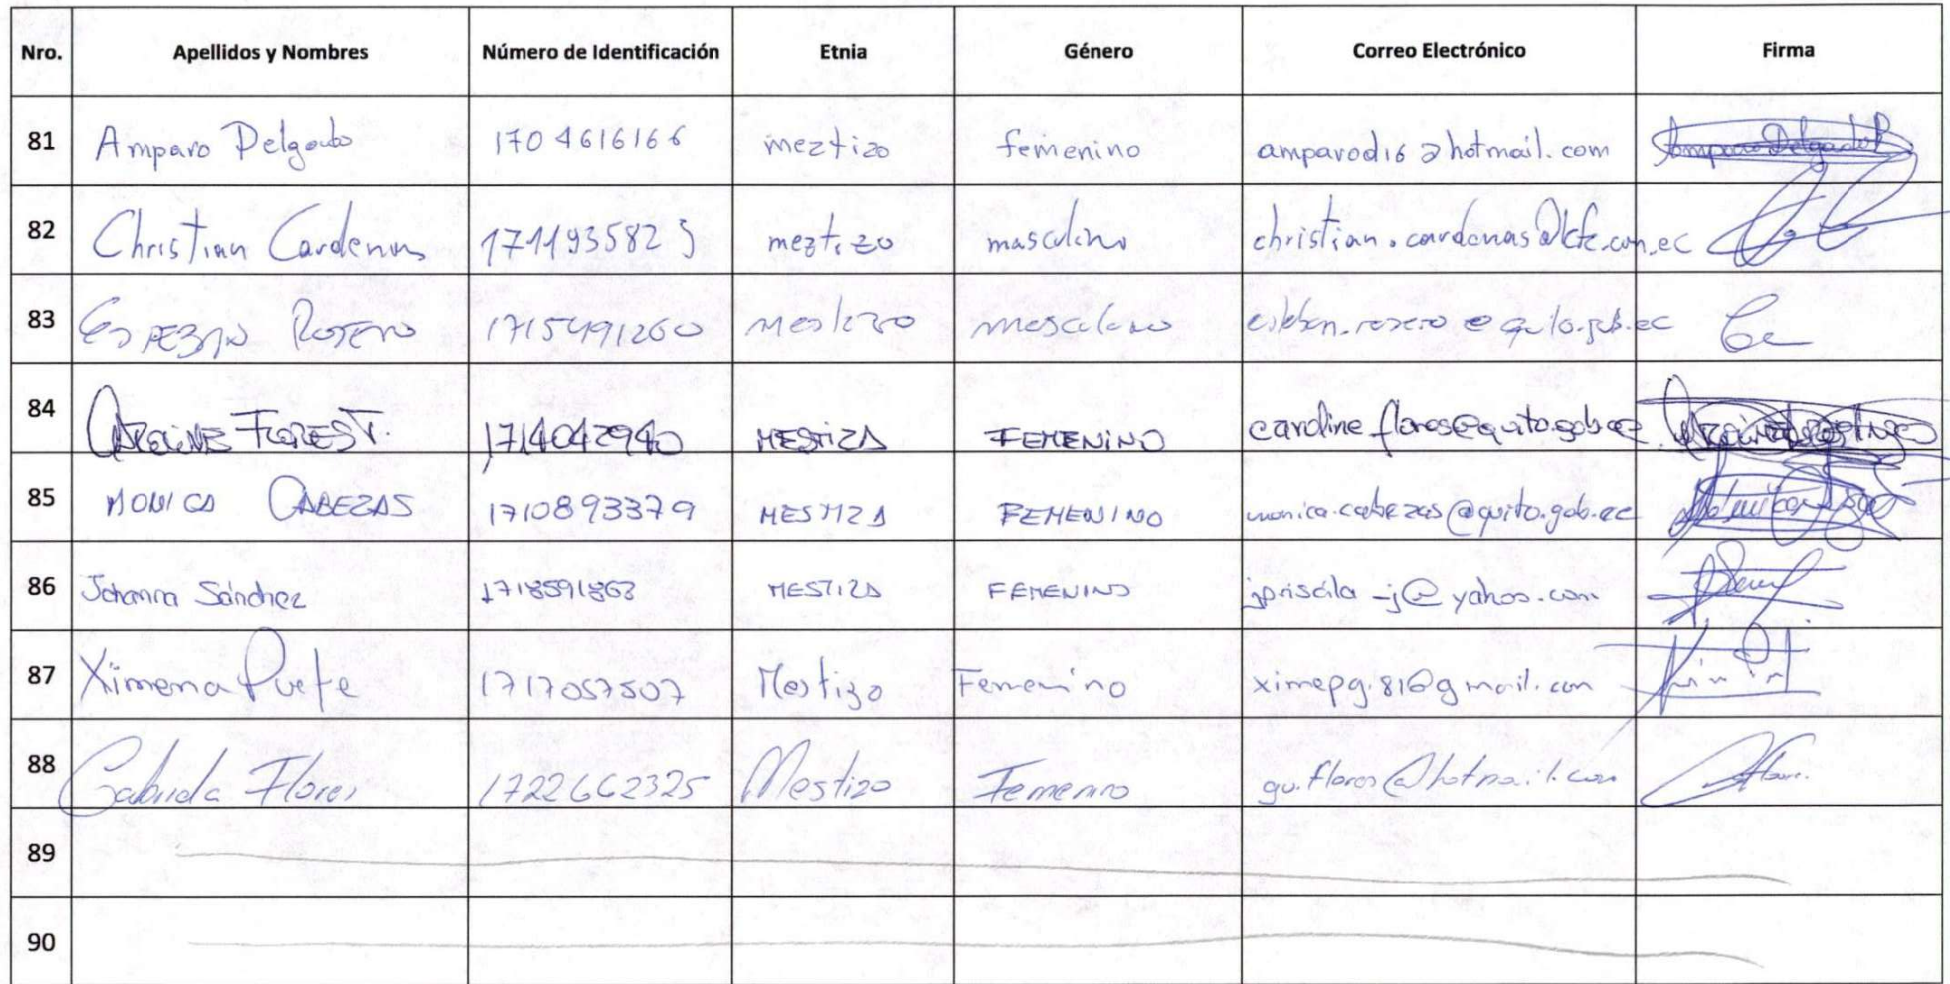 Nro. Apellidos y Nombres Número de Identificación Etnia Género Correo Electrónico Firma
81 Amparo Delgado 1704616166 meztizo femenino amparod16@hotmail.com Amparo Delgado
82 Christian Cardenas 1711935825 meztizo masculino
83 Rosero 1715491260 mestizo masculino esteban.rosero@quito.gob.ec
84 CAROLINE FLORES T. 1714042940 MESTIZA FEMENINO caroline.flores@quito.gob.ec
85 MONICA CABEZAS 1710893379 MESTIZA FEMENINO monica.cabezas@quito.gob.ec
86 Johanna Sánchez MESTIZA FEMENINO jpriscila_j@yahoo.com
87 Ximena Puete 1717057507 Mestizo Femenino ximepg.81@gmail.com
88 Gabriela Flores 1722662325 Mestizo Femenino gv.flores@hotmail.com
89
90